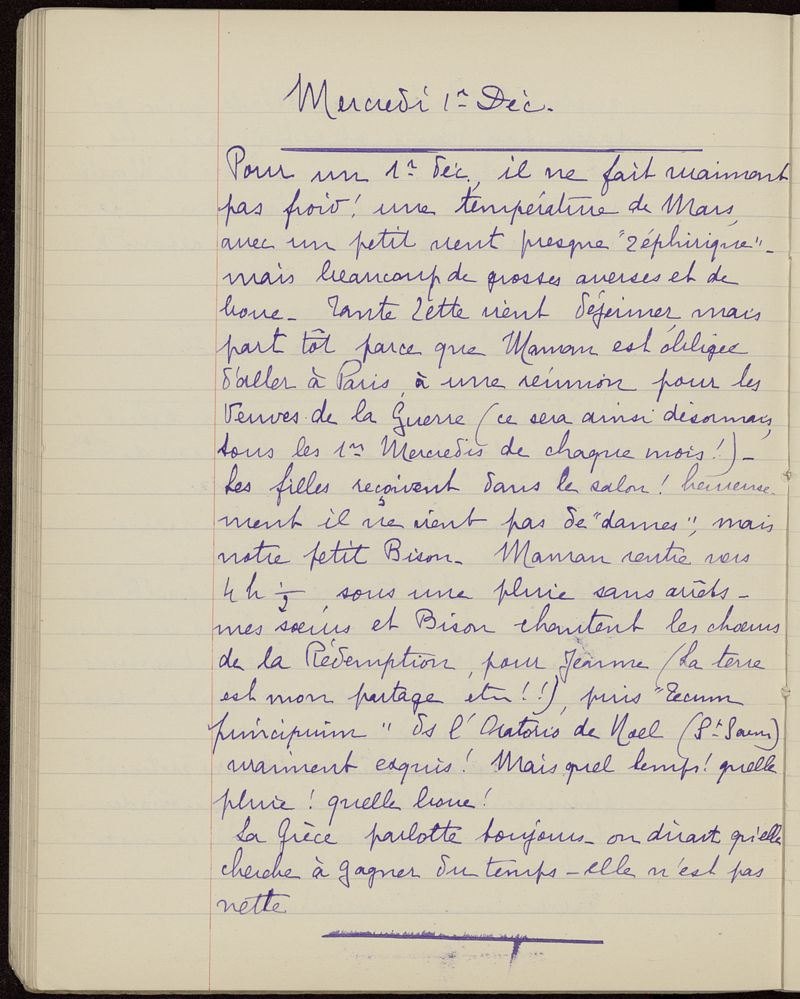 Mercredi 1er Déc.
Pour un 1er déc., il ne fait vraiment
pas froid! une température de Mars,
avec un petit vent presque "zéphirique" -
mais beaucoup de grosses averses et de
boue - Tante Zette vient déjeuner, mais
part tôt parce que Maman est obligée
d'aller à Paris, à une réunion pour les
Veuves de la Guerre (ce sera ainsi désormais,
tous les 1ers Mercredis de chaque mois!) -
Les filles reçoivent dans le salon! heureuse-
ment il ne vient pas de "dames", mais
notre petit Bison - Maman rentre vers
4 h 1/2, sous une pluie sans arrêts -
mes sœurs et Bison chantent les chœurs
de la Rédemption, pour Jeanne (La terre
est mon partage etc!!), puis "Tecum
principium" ds l'Oratorio de Noel (St Saens)
vraiment exquis! Mais quel temps! quelle
pluie! quelle boue!
La Grèce parlotte toujours - on dirait qu'elle
cherche à gagner du temps - elle n'est pas
nette